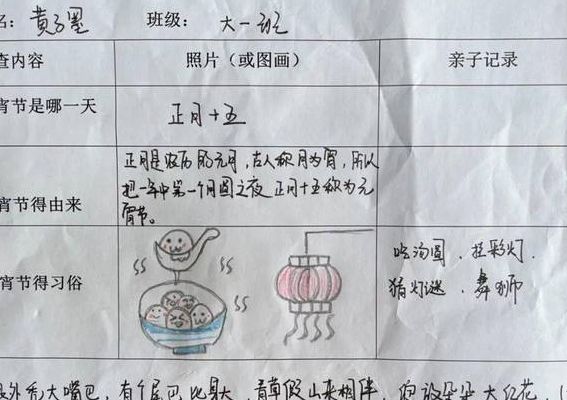 名：黄子墨 班级：大一班
查内容 照片（或图画） 亲子记录
宵节是哪一天 正月十五
正月是农历的元月，古人称月为宵，所以
把一年中第一个月圆之夜正月十五称为元
宵节。
宵节得由来
宵节得习俗
吃汤圆、挂彩灯、
猜灯谜、舞狮
大嘴巴，有个尾巴比鼻大，青草假山来相伴，